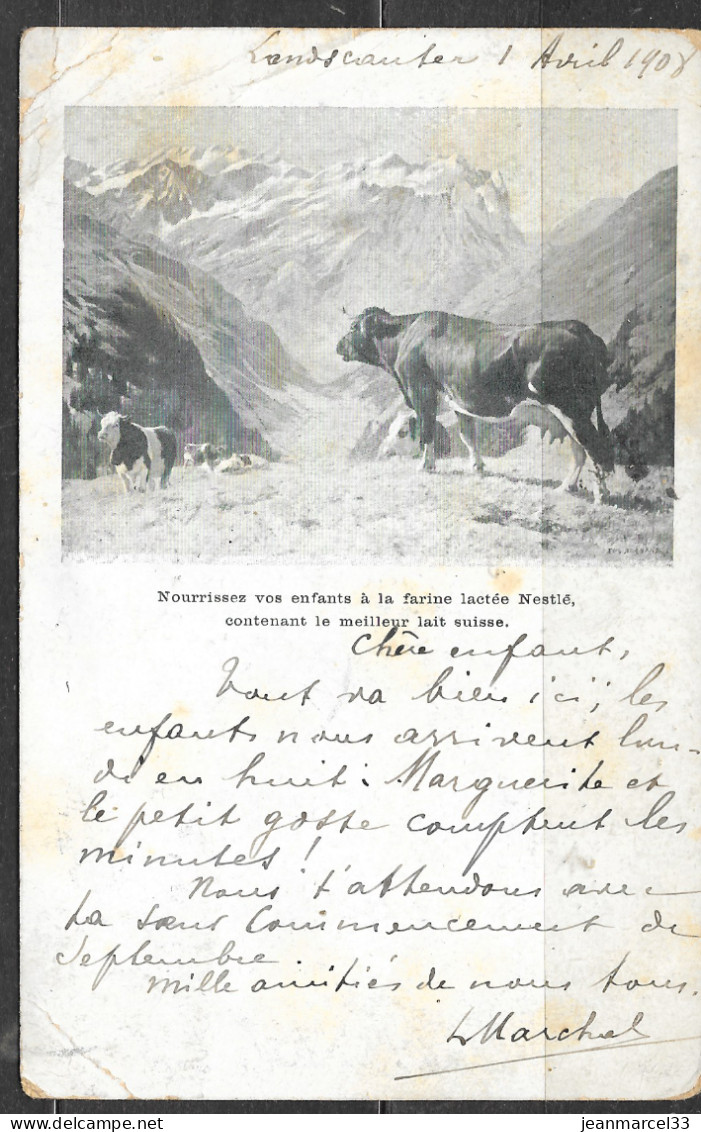 1 Avril 1908
Nourrissez vos enfants à la farine lactée Nestlé,
contenant le meilleur lait suisse.
Chère enfant,
Tout va bien ici, les
enfants nous arrivent lun-
di en huit. Marguerite et
le petit gosse comptent les
minutes !
Nous t'attendons avec
ta sœur commencement de
Septembre
Mille amitiés de nous tous.
L Marchal
delcampe.net
jeanmarcel33